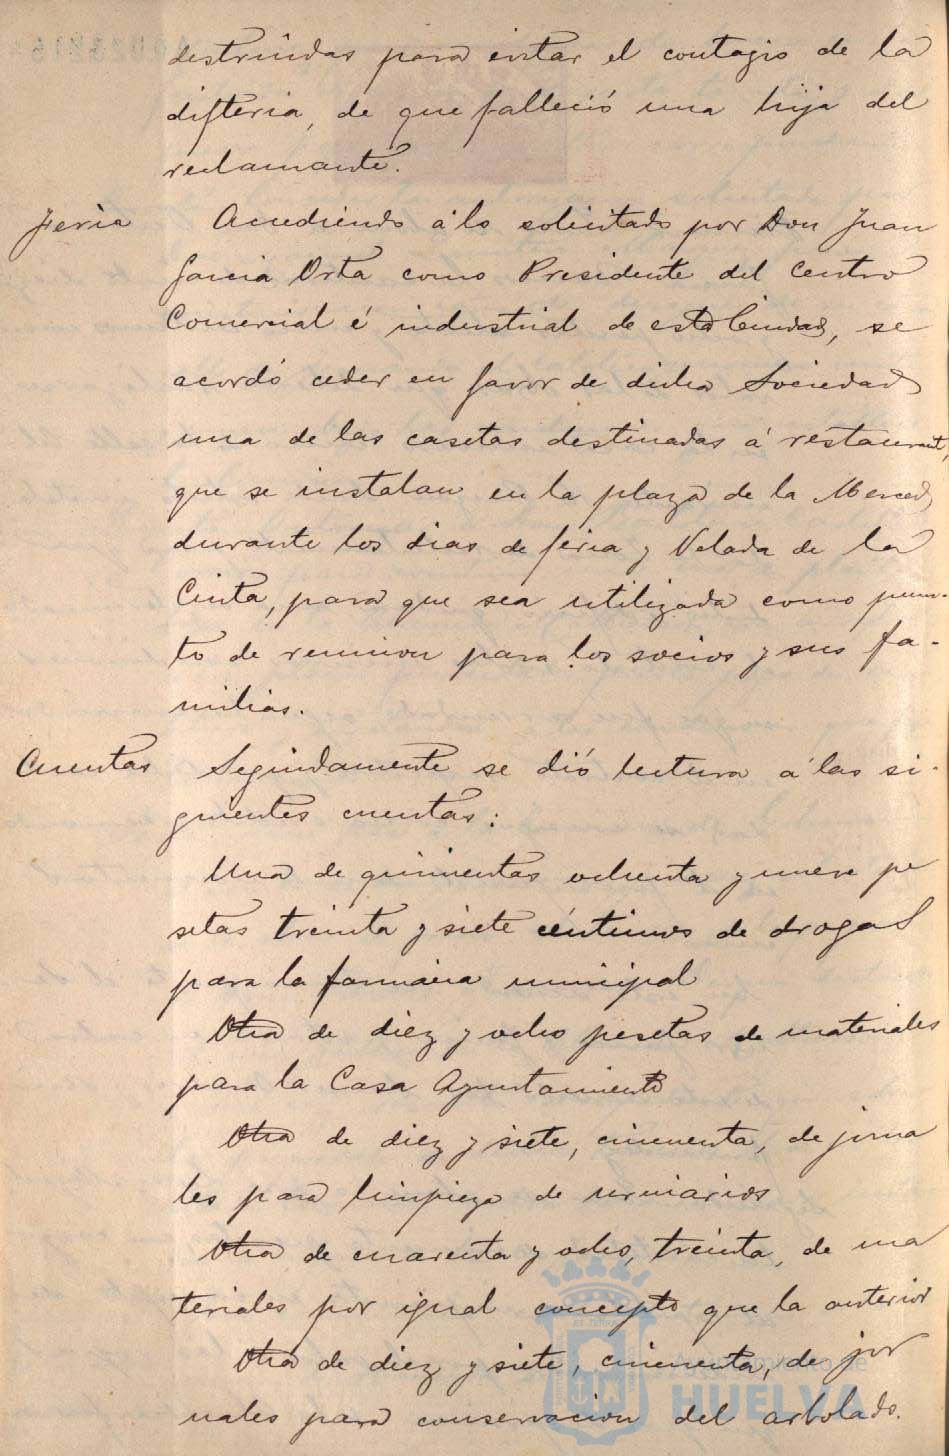 destruidas para evitar el contagio de la
difteria, de que falleció una hija del
reclamante.
Feria
Accediendo á lo solicitado por Don Juan
Garcia Orta como Presidente del Centro
Comercial é industrial de esta Ciudad, se
acordó ceder en favor de dicha Sociedad
una de las casetas destinadas á restaurant,
que se instalan en la plaza de la Merced
durante los dias de feria y Velada de la
Cinta, para que sea utilizada como pun-
to de reunion para los socios y sus fa-
milias.
Cuentas
Seguidamente se dió lectura á las si-
guientes cuentas:
Una de quinientas ochenta y nueve pe
setas treinta y siete céntimos de drogas
para la farmacia municipal
Otra de diez y ocho pesetas de materiales
para la Casa Ayuntamiento
Otra de diez y siete, cincuenta, de jorna
les para limpieza de urinarios
Otra de cuarenta y ocho, treinta, de ma
teriales por igual concepto que la anterior
Otra de diez y siete, cincuenta, de jor
nales para conservacion del arbolado.
Ayuntamiento de
HUELVA